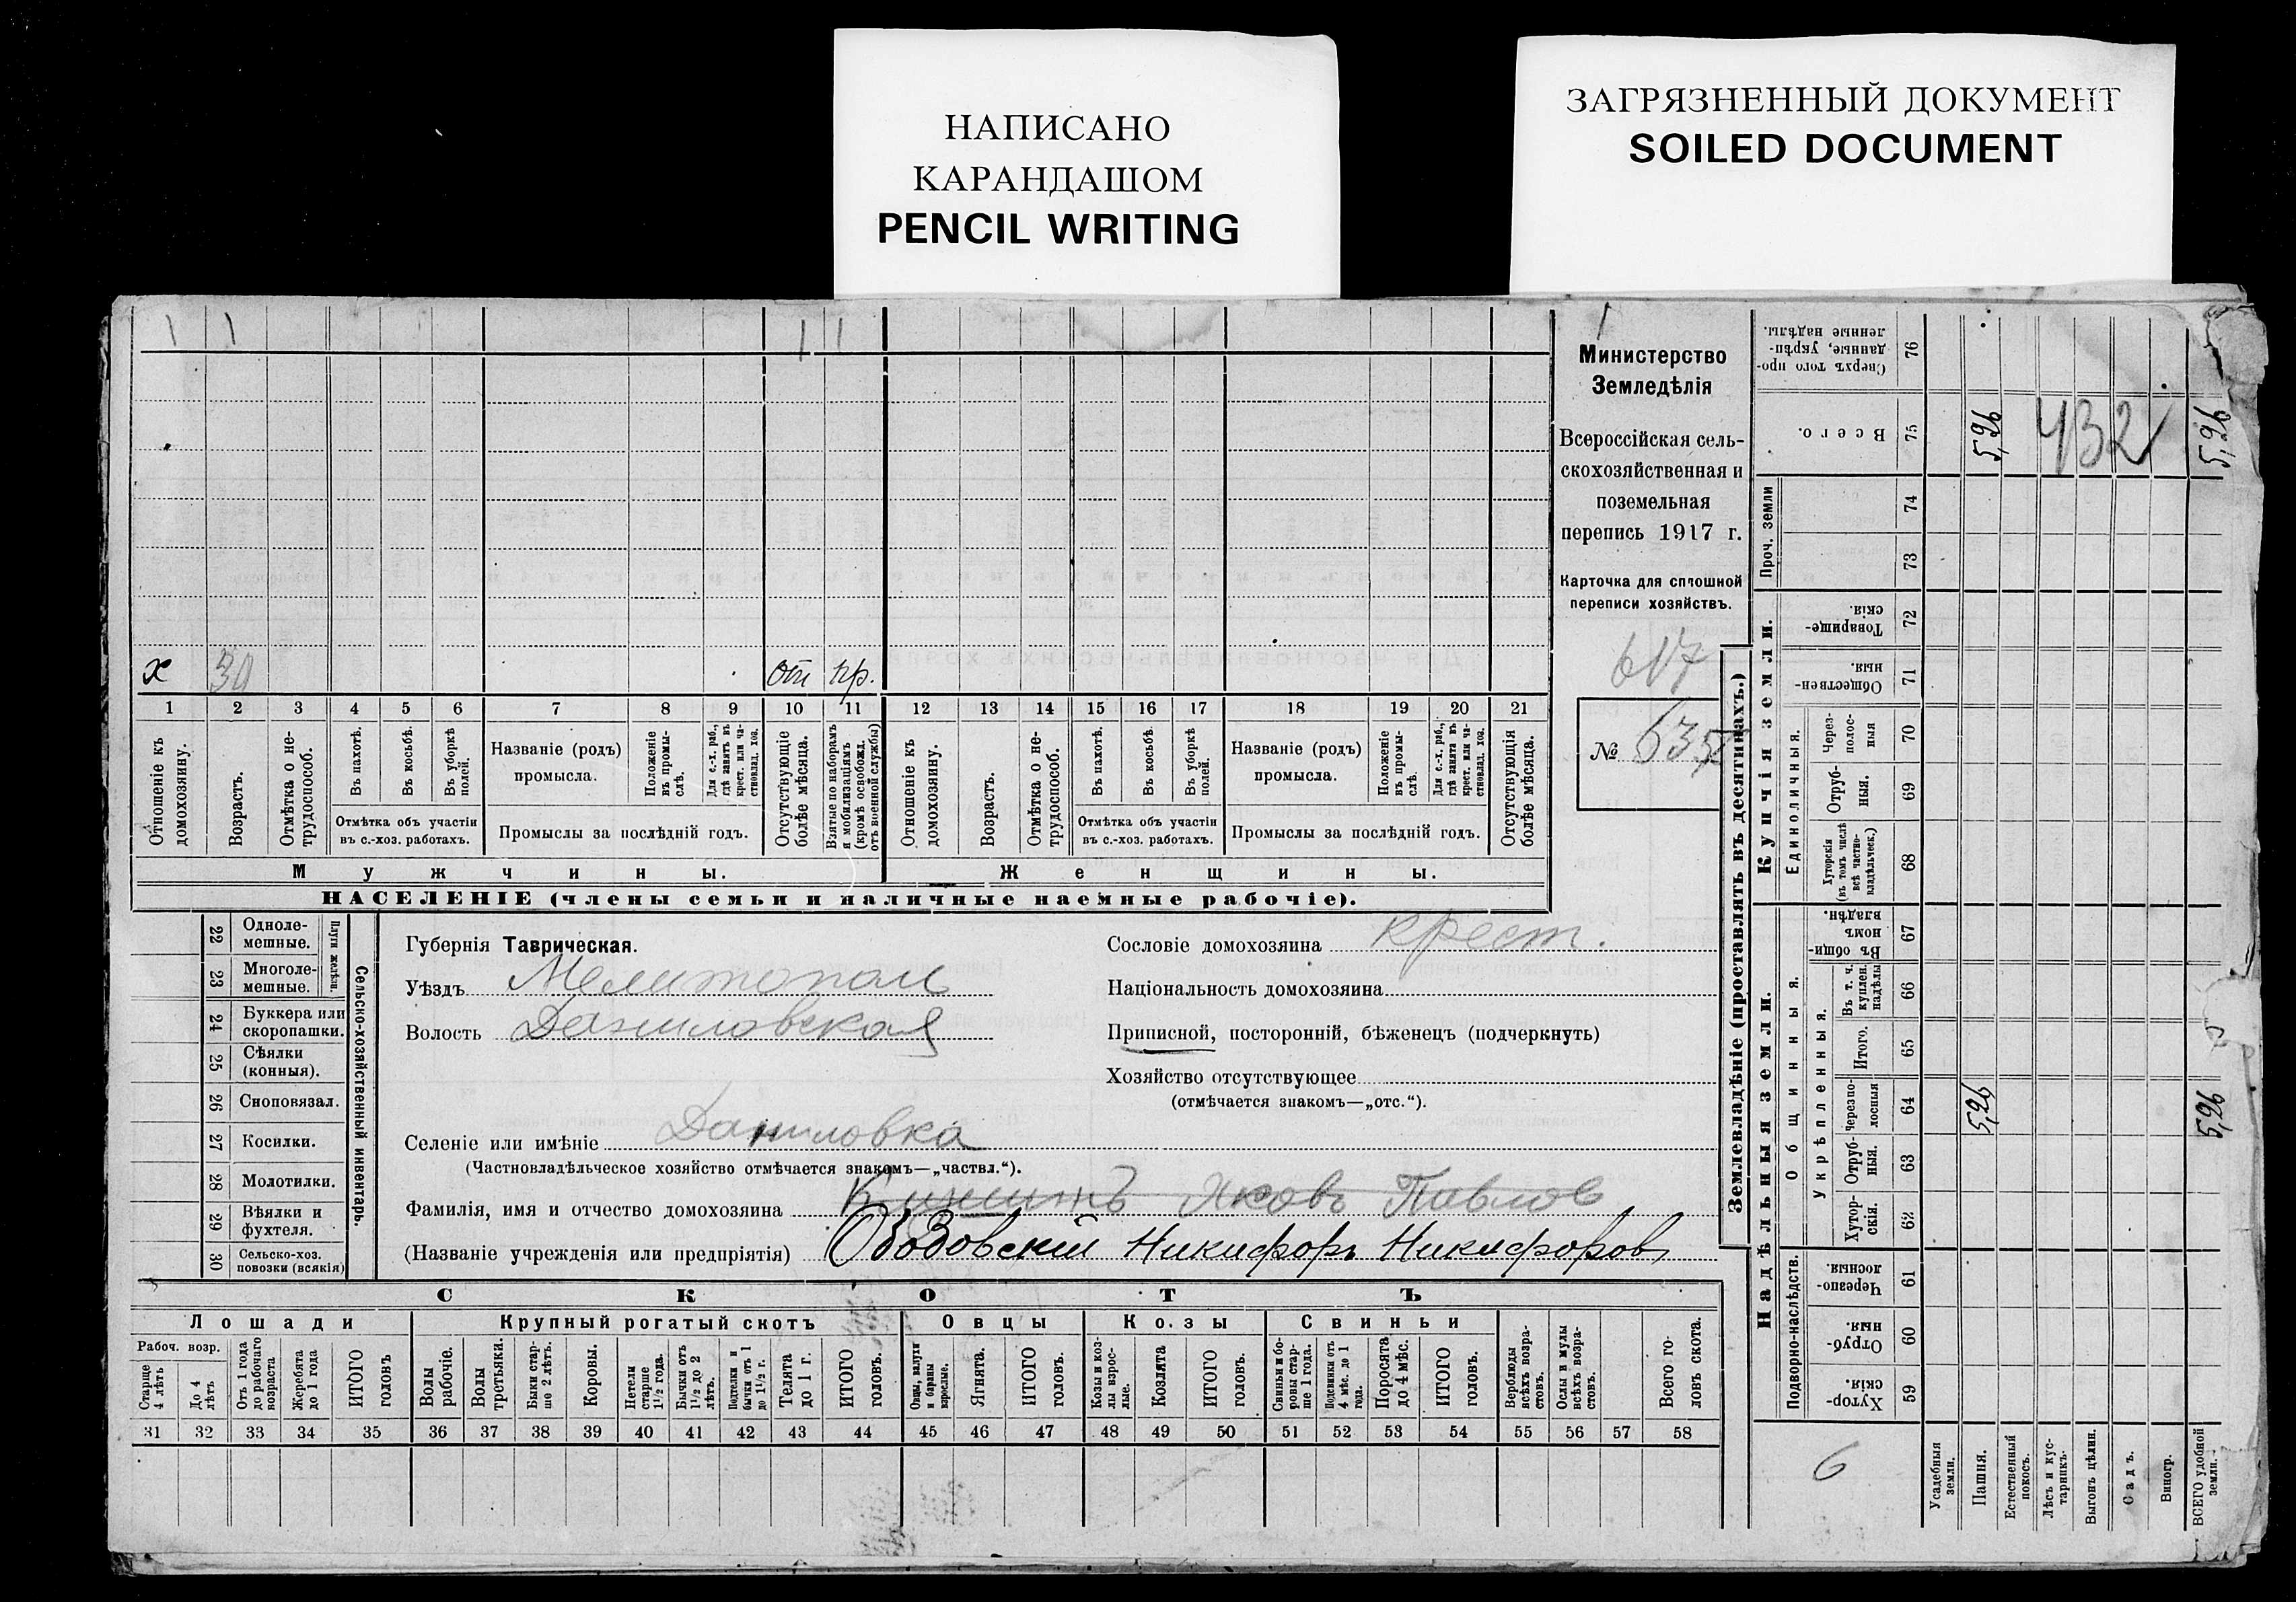 НАПИСАНО
КАРАНДАШОМ
PENCIL WRITING
ЗАГРЯЗНЕННЫЙ ДОКУМЕНТ
SOILED DOCUMENT
1 1 1 1
х 30 от пр.
1 2 3 4 5 6 7 8 9 10 11 12 13 14 15 16 17 18 19 20 21
Отношеніе къ домохозяину.
Возрастъ.
Отмѣтка о не-трудоспособ.
Въ пахотѣ.
Въ косьбѣ.
Въ уборкѣ полей.
Отмѣтка объ участіи
въ с.-хоз. работахъ.
Названіе (родъ)
промысла.
Положеніе въ промы-слѣ.
Для с.-х. раб., гдѣ занятъ въ крест. или ча-стновлад. хоз.
Промыслы за послѣдній годъ.
Отсутствующіе болѣе мѣсяца.
Взятые по наборамъ и мобилизаціямъ (кромѣ освобожд. отъ военной службы)
Отношеніе къ домохозяину.
Возрастъ.
Отмѣтка о не-трудоспособ.
Въ пахотѣ.
Въ косьбѣ.
Въ уборкѣ полей.
Отмѣтка объ участіи
въ с.-хоз. работахъ.
Названіе (родъ)
промысла.
Положеніе въ промы-слѣ.
Для с.-х. раб., гдѣ занята въ крест. или ча-стновлад. хоз.
Промыслы за послѣдній годъ.
Отсутствующія болѣе мѣсяца.
Мужчины.
Женщины.
НАСЕЛЕНІЕ (члены семьи и наличные наемные рабочіе).
1
Министерство
Земледѣлія
Всероссійская сель-
скохозяйственная и
поземельная
перепись 1917 г.
Карточка для сплошной
переписи хозяйствъ.
617
№ 635
22 Одноле-мешные.
23 Многоле-мешные.
Плуги желѣзн.
24 Буккера или скоропашки.
25 Сѣялки (конныя).
26 Сноповязал.
27 Косилки.
28 Молотилки.
29 Вѣялки и фухтеля.
30 Сельско-хоз. повозки (всякія)
Сельско-хозяйственный инвентарь.
Губернія Таврическая.
Уѣздъ Мелитопол
Волость Даниловская
Селеніе или имѣніе Даниловка
(Частновладѣльческое хозяйство отмѣчается знакомъ—„частвл.“).
Фамилія, имя и отчество домохозяина Яковъ Павлов
(Названіе учрежденія или предпріятія) Ободовскій Никифоръ Никифоров
Сословіе домохозяина крест.
Національность домохозяина
Приписной, посторонній, бѣженецъ (подчеркнуть)
Хозяйство отсутствующее
(отмѣчается знакомъ—„отс.“).
СКОТЪ
Лошади
Крупный рогатый скотъ
Овцы
Козы
Свиньи
Рабоч. возр.
Старше 4 лѣтъ
До 4 лѣтъ
Отъ 1 года до рабочаго возраста
Жеребята до 1 года
ИТОГО головъ
Волы рабочіе.
Волы третьяки.
Быки стар-ше 2 лѣтъ.
Коровы.
Нетели старше 1½ года.
Бычки отъ 1½ до 2 лѣтъ.
Подтелки и бычки отъ 1 до 1½ г.
Телята до 1 г.
ИТОГО головъ.
Овцы, валухи и бараны взрослые.
Ягнята.
ИТОГО головъ.
Козы и коз-лы взрос-лые.
Козлята
ИТОГО головъ.
Свиньи и бо-ровы стар-ше 1 года.
Подсвинки отъ 4 мѣс. до 1 года.
Поросята до 4 мѣс.
ИТОГО головъ.
Верблюды всѣхъ возра-стовъ.
Ослы и мулы всѣхъ возра-стовъ.
Всего го-ловъ скота.
31 32 33 34 35 36 37 38 39 40 41 42 43 44 45 46 47 48 49 50 51 52 53 54 55 56 57 58
Землевладѣніе (проставлять въ десятинахъ.)
Надѣльныя земли.
Купчія земли.
Проч. земли
Подворно-наслѣдств.
Общинныя.
Укрѣпленныя.
Единоличныя.
Сверхъ того про-данные, укрѣп-ленные надѣлы. 76
Всего. 75 5,26 432 5,26
74
73
Товарище-скія. 72
Обществен-ныя. 71
Через-полос-ныя 70
Отруб-ныя. 69
Хуторскія (въ томъ числѣ всѣ частно-владѣльческ.) 68
Въ общин-номъ владѣн. 67
Въ т. ч. куплен. надѣлы 66
Итого. 65
Черезпо-лосныя 64 5,26 5,26
Отруб-ныя. 63
Хутор-скія. 62
Черезпо-лосныя. 61
Отруб-ныя. 60
Хутор-скія. 59
6
Усадебныя земли.
Пашня.
Естественный покосъ.
Лѣсъ и кус-тарникъ.
Выгонъ цѣлин.
Садъ.
Виногр.
ВСЕГО удобной земли.